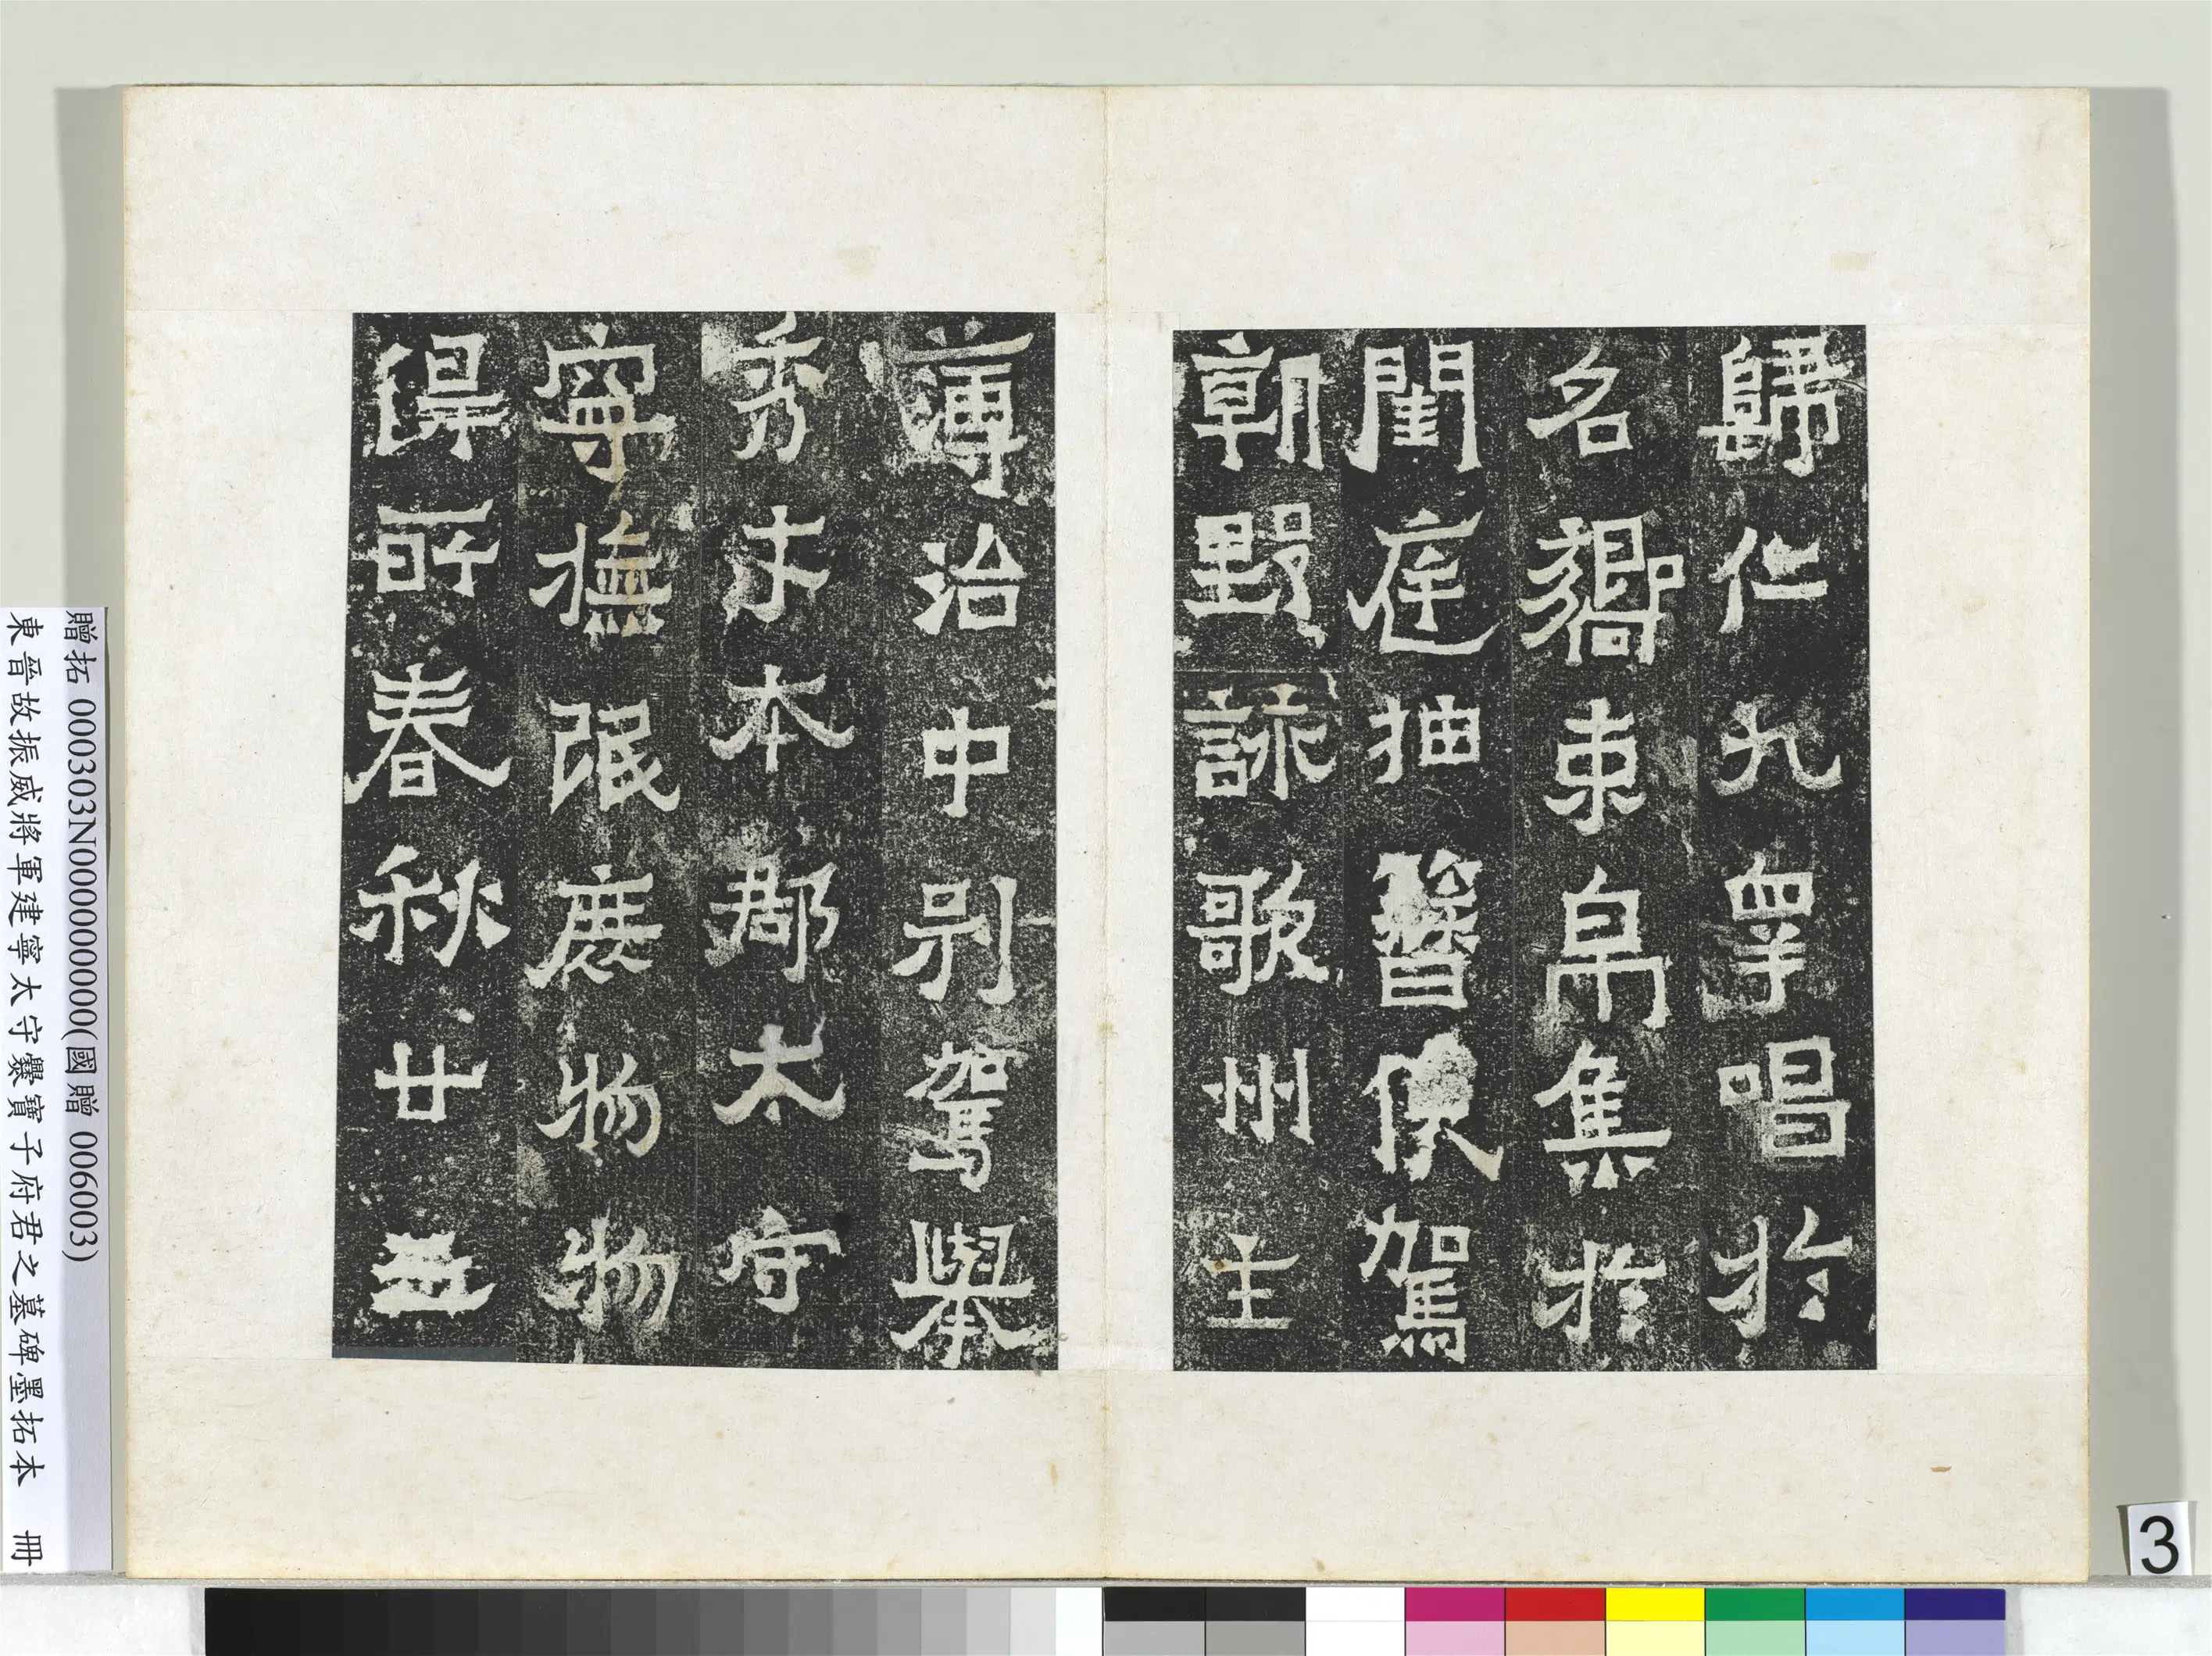 歸仁九皋唱於
名嚮束帛集於
閨庭抽簪俟駕
朝野詠歌州主
薄治中別駕舉
秀才本郡太守
寧撫氓庶物物
得所春秋廿五
贈拓 000303N000000000(國贈 006003)
東晉故振威將軍建寧太守爨寶子府君之墓碑墨拓本 冊
3